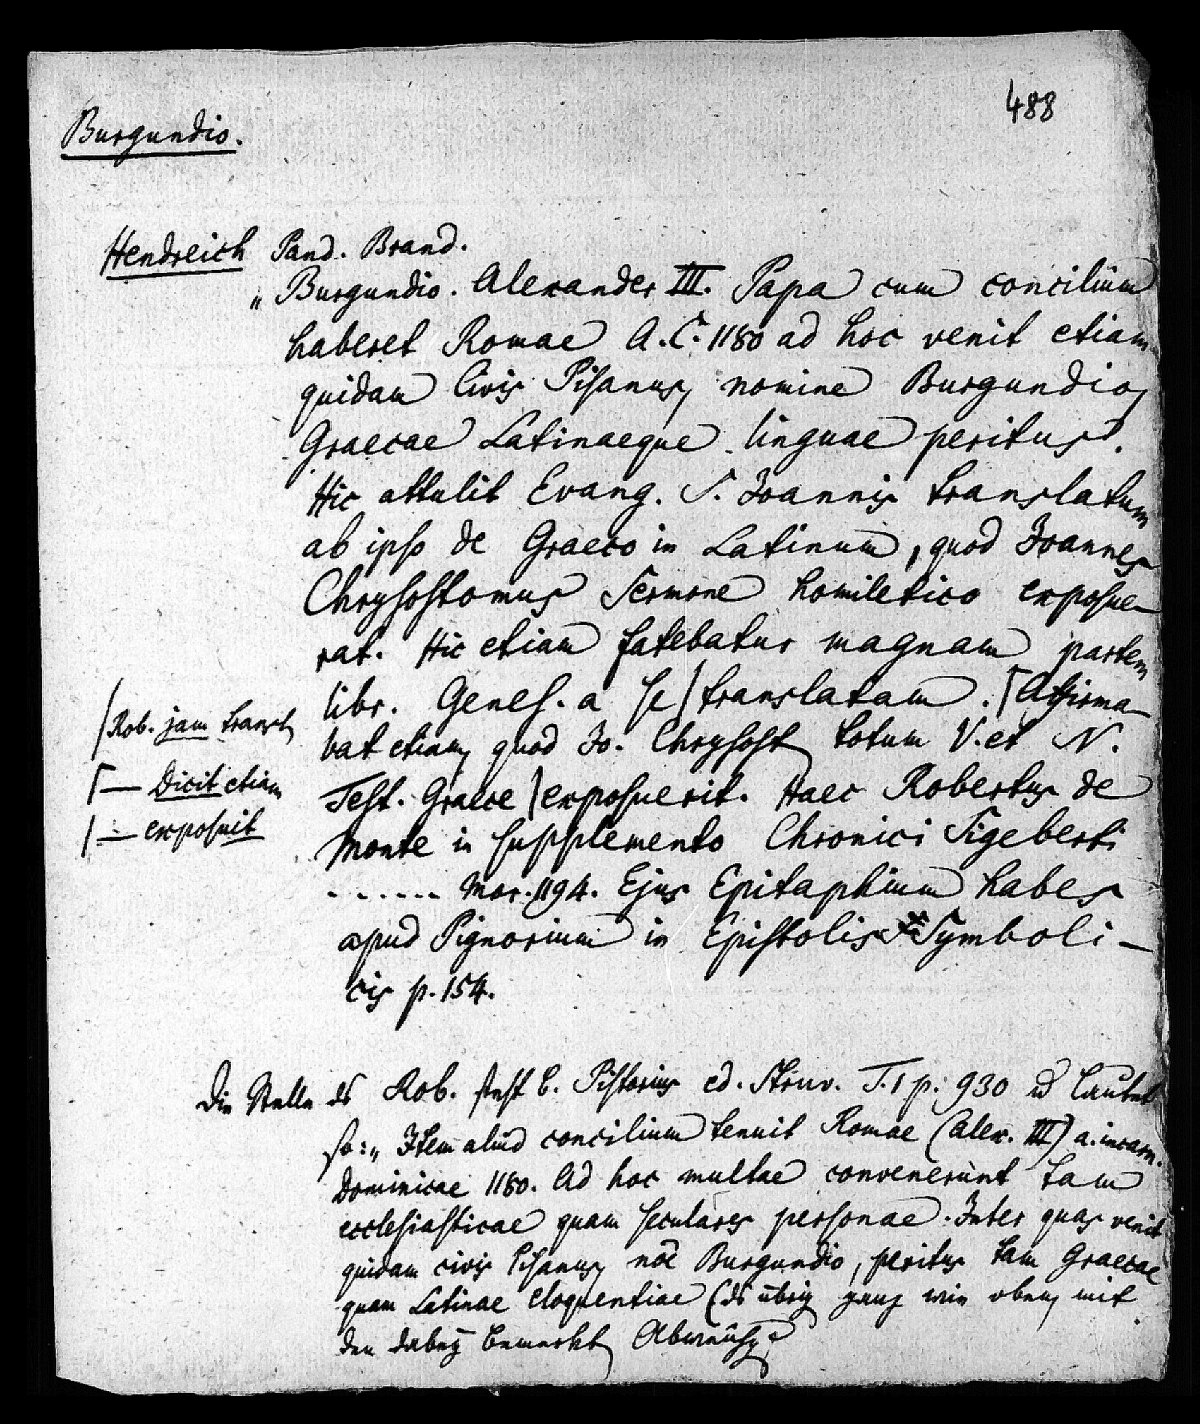 488
Burgundio.
Hendreich Pand. Brand.
„ Burgundio. Alexander III. Papa cum concilium
haberet Romae A.C. 1180 ad hoc venit etiam
quidam Civis Pisanus, nomine Burgundio,
Graecae Latinaeque linguae peritus.
Hic attulit Evang. S. Joannis translatum
ab ipso de Graeco in Latinum, quod Joannes
Chrysostomus Sermone homiletico exposue-
rat. Hic etiam fatebatur magnam partem
libr. Genes. a se / translatam. ⌈Affirma-
bat etiam, quod Jo. Chrysost. totum V. et N.
Test. Graece / exposuerit. Haec Robertus de
Monte in supplemento Chronici Sigeberti
...... Mor. 1194. Ejus Epitaphium habes
apud Pignorium in Epistolis Symboli-
cis p. 154.
/ Rob. jam transl.
⌈ — Dicit etiam
/ — exposuit
Die Stelle ds Rob. steht b. Pistorius ed. Struv. T. 1 p. 930 ud lautet
so: „ Item aliud concilium tenuit Romae (Alex. III) a. incarn.
Dominicae 1180. Ad hoc multae convenerunt tam
ecclesiasticae quam seculares personae. Inter quas venit
quidam civis Pisanus, noe Burgundio, peritus tam Graecae
quam Latinae eloquentiae (ds übrig. ganz wie oben, mit
den dabey bemerkt.